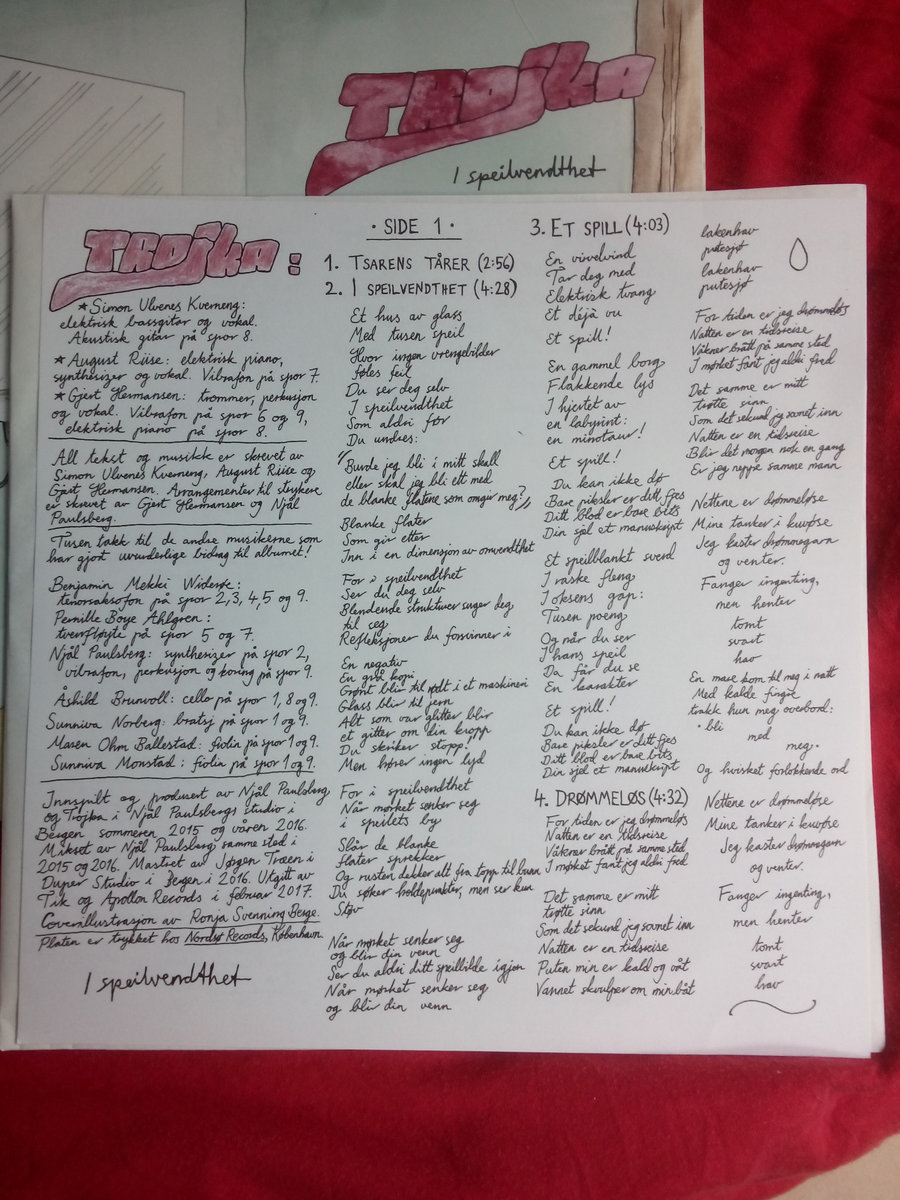 TROJKA
I speilvendthet
TROJKA:
★ Simon Ulvenes Kverneng:
elektrisk bassgitar og vokal.
Akustisk gitar på spor 8.
★ August Riise: elektrisk piano,
synthesizer og vokal. Vibrafon på spor 7.
★ Gjert Hermansen: trommer, perkusjon
og vokal. Vibrafon på spor 6 og 9,
elektrisk piano på spor 8.
All tekst og musikk er skrevet av
Simon Ulvenes Kverneng, August Riise og
Gjert Hermansen. Arrangementer til strykere
er skrevet av Gjert Hermansen og Njål
Paulsberg.
Tusen takk til de andre musikerne som
har gjort uvurderlige bidrag til albumet!
Benjamin Mekki Widerøe:
tenorsaksofon på spor 2, 3, 4, 5 og 9.
Pernille Bøye Ahlgren:
tverrfløyte på spor 5 og 7.
Njål Paulsberg: synthesizer på spor 2,
vibrafon, perkusjon og koring på spor 9.
Åshild Brunvoll: cello på spor 1, 8 og 9.
Sunniva Norberg: bratsj på spor 1 og 9.
Maren Ohm Ballestad: fiolin på spor 1 og 9.
Sunniva Monstad: fiolin på spor 1 og 9.
Innspilt og produsert av Njål Paulsberg
og Trojka i Njål Paulsbergs studio i
Bergen sommeren 2015 og våren 2016.
Mikset av Njål Paulsberg samme sted i
2015 og 2016. Mastret av Jørgen Træen i
Duper Studio i Bergen i 2016. Utgitt av
Tik og Apollon Records i februar 2017.
Coverillustrasjon av Ronja Svenning Berge.
Platen er trykket hos Nordsø Records, København.
I speilvendthet
· SIDE 1 ·
1. TSARENS TÅRER (2:56)
2. I SPEILVENDTHET (4:28)
Et hus av glass
Med tusen speil
Hvor ingen vrengebilder
føles feil
Du ser deg selv
I speilvendthet
Som aldri før
Du undres:
"Burde jeg bli i mitt skall
eller skal jeg bli ett med
de blanke flatene som omgir meg?"
Blanke flater
Som gir etter
Inn i en dimensjon av omvendthet
For i speilvendthet
Ser du deg selv
Blendende strukturer suger deg
til seg
Refleksjoner du forsvinner i
En negativ
En grå kopi
Grønt blir til rødt i et maskineri
Glass blir til jern
Alt som var glitter blir
et gitter om din kropp
Du skriker stopp!
Men hører ingen lyd
For i speilvendthet
Når mørket senker seg
i speilets by
Slår de blanke
flater sprekker
Og rusten dekker alt fra topp til bunn
Du søker holdepunkter, men ser kun
Støv
Når mørket senker seg
og blir din venn
Ser du aldri ditt speilbilde igjen
Når mørket senker seg
og blir din venn
3. ET SPILL (4:03)
En virvelvind
Tar deg med
Elektrisk tvang
Et déjà vu
Et spill!
En gammel borg
Flakkende lys
I hjertet av
en labyrint:
en minotaur!
Et spill!
Du kan ikke dø
Bare piksler er ditt fjes
Ditt blod er bare bits
Din sjel et manuskript
Et speilblankt sverd
I raske fleng
I oksens gap:
Tusen poeng
Og når du ser
I hans speil
Da får du se
En karakter
Et spill!
Du kan ikke dø
Bare piksler er ditt fjes
Ditt blod er bare bits
Din sjel et manuskript
4. DRØMMELØS (4:32)
For tiden er jeg drømmeløs
Natten er en tidsreise
Våkner brått på samme sted
I mørket fant jeg aldri fred
Det samme er mitt
trøtte sinn
Som det sekund jeg sovnet inn
Natten er en tidsreise
Puten min er kald og våt
Vannet skvulper om min båt
lakenhav
putesjø
lakenhav
putesjø
For tiden er jeg drømmeløs
Natten er en tidsreise
Våkner brått på samme sted
I mørket fant jeg aldri fred
Det samme er mitt
trøtte sinn
Som det sekund jeg sovnet inn
Natten er en tidsreise
Blir det morgen nok en gang
Er jeg neppe samme mann
Nettene er drømmeløse
Mine tanker i kuvøse
Jeg kaster drømmegarn
og venter.
Fanger ingenting,
men henter
tomt
svart
hav
En mare kom til meg i natt
Med kalde fingre
trakk hun meg overbord:
"bli
med
meg"
Og hvisket forlokkende ord
Nettene er drømmeløse
Mine tanker i kuvøse
Jeg kaster drømmegarn
og venter.
Fanger ingenting,
men henter
tomt
svart
hav